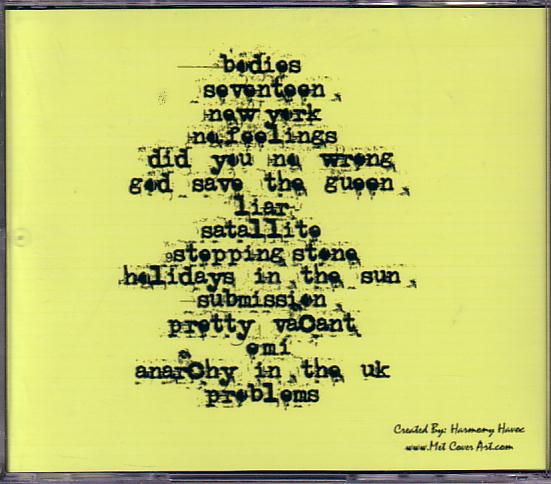 bodies
seventeen
new york
no feelings
did you no wrong
god save the gueen
liar
satallite
stepping stone
holidays in the sun
submission
pretty vaCant
emi
anarChy in the uk
problems
Created By: Harmony Havoc
www.Met Cover Art.com